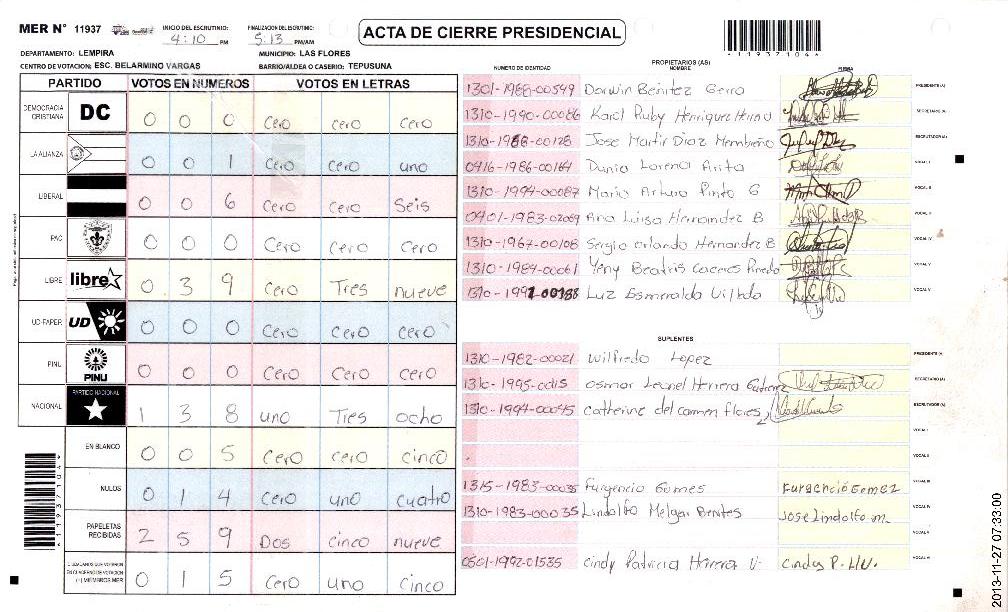 MER Nº 11937 INICIO DEL ESCRUTINIO: 4:10 PM FINALIZACION DEL ESCRUTINIO: 5:13 PM/AM ACTA DE CIERRE PRESIDENCIAL
*11937104*
DEPARTAMENTO: LEMPIRA MUNICIPIO: LAS FLORES
CENTRO DE VOTACION: ESC. BELARMINO VARGAS BARRIO/ALDEA O CASERIO: TEPUSUNA
PARTIDO VOTOS EN NUMEROS VOTOS EN LETRAS
DEMOCRACIA CRISTIANA DC 0 0 0 Cero cero cero
LA ALIANZA 0 0 1 Cero cero uno
LIBERAL 0 0 6 Cero Cero Seis
PAC 0 0 0 Cero Cero Cero
LIBRE libre 0 3 9 Cero Tres nueve
UD-FAPER UD 0 0 0 Cero Cero Cero
PINU PINU 0 0 0 Cero Cero Cero
NACIONAL PARTIDO NACIONAL 1 3 8 uno Tres ocho
EN BLANCO 0 0 5 Cero cero cinco
NULOS 0 1 4 Cero uno cuatro
PAPELETAS RECIBIDAS 2 5 9 Dos cinco nueve
CIUDADANOS QUE VOTARON EN CUADERNO DE VOTACION (+) MIEMBROS MER 0 1 5 Cero uno cinco
*11937104*
PROPIETARIOS (AS)
NUMERO DE IDENTIDAD NOMBRE FIRMA
1301-1988-00549 Darwin Benitez PRESIDENTE (A)
1310-1990-00086 Karol Ruby Henriquez SECRETARIO (A)
1310-1988-00128 Jose Martir Diaz Membreño ESCRUTADOR (A)
0416-1986-00164 Dunia Lorena Arita VOCAL I
1310-1994-00087 Mario Arturo Pinto G VOCAL II
0401-1983-02069 Ana Luisa Hernandez B VOCAL III
1310-1967-00108 Sergio Orlando Hernandez B VOCAL IV
1310-1984-00061 Yeny Beatris Caceres Pineda VOCAL V
Luz Esmeralda VOCAL VI
SUPLENTES
1310-1982-00021 Wilfredo Lopez PRESIDENTE (A)
1310-1995-00115 Osmar Leonel Herrera SECRETARIO (A)
1310-1994-00045 Catherine del carmen flores ESCRUTADOR (A)
VOCAL I
VOCAL II
1315-1983-00035 Furgencio Gomes Furgencio Gomez VOCAL III
1310-1983-00035 Lindolfo Melgar Benites Jose Lindolfo m. VOCAL IV
VOCAL V
0501-1992-01535 Cindy Patricia Herrera U. Cindy P. H.U. VOCAL VI
2013-11-27 07:33:00